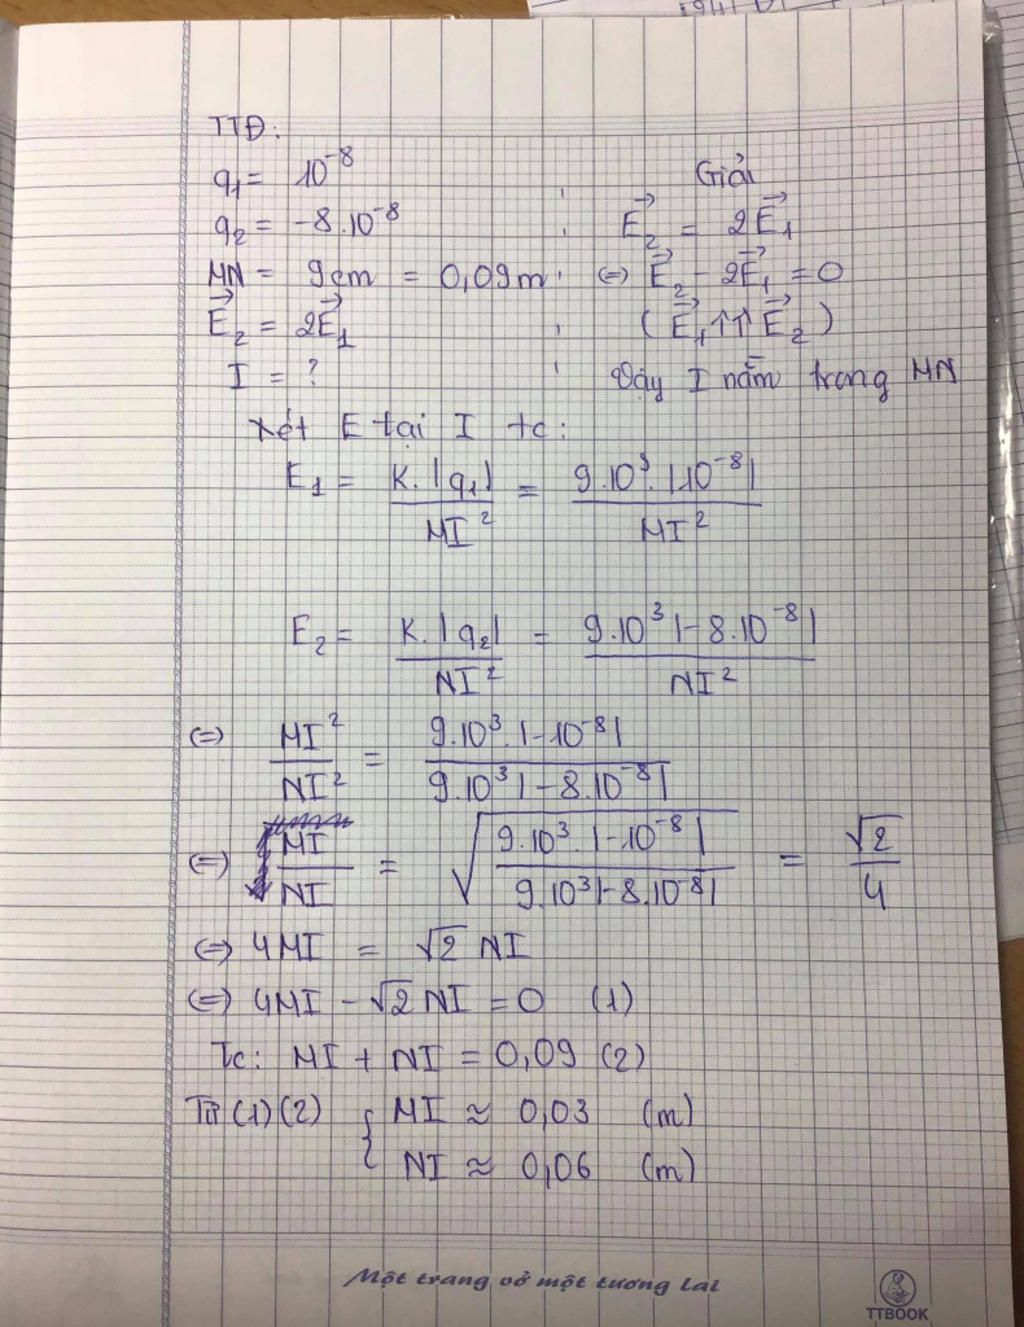 TTĐ:
q₁ = 10⁻⁸
Giải
q₂ = -8.10⁻⁸
E₂→ = 2E₁→
MN = 9cm = 0,09m
(=) E₂→ - 2E₁→ = 0
E₂→ = 2E₁→
(E₁→ ↑↑ E₂→)
I = ?
Vậy I nằm trong MN
Xét E tại I tc:
E₁ = K.|q₁| / MI² = 9.10⁹.|10⁻⁸| / MI²
E₂ = K.|q₂| / NI² = 9.10³|-8.10⁻⁸| / NI²
(=) MI² / NI² = 9.10³.|-10⁻⁸| / 9.10³|-8.10⁻⁸|
(=) MI / NI = √(9.10³.|-10⁻⁸| / 9.10³|-8.10⁻⁸|) = √2 / 4
(=) 4MI = √2 NI
(=) 4MI - √2 NI = 0 (1)
Tc: MI + NI = 0,09 (2)
Từ (1)(2) { MI ≈ 0,03 (m)
NI ≈ 0,06 (m)
Một trang vở một tương lai
TTBOOK